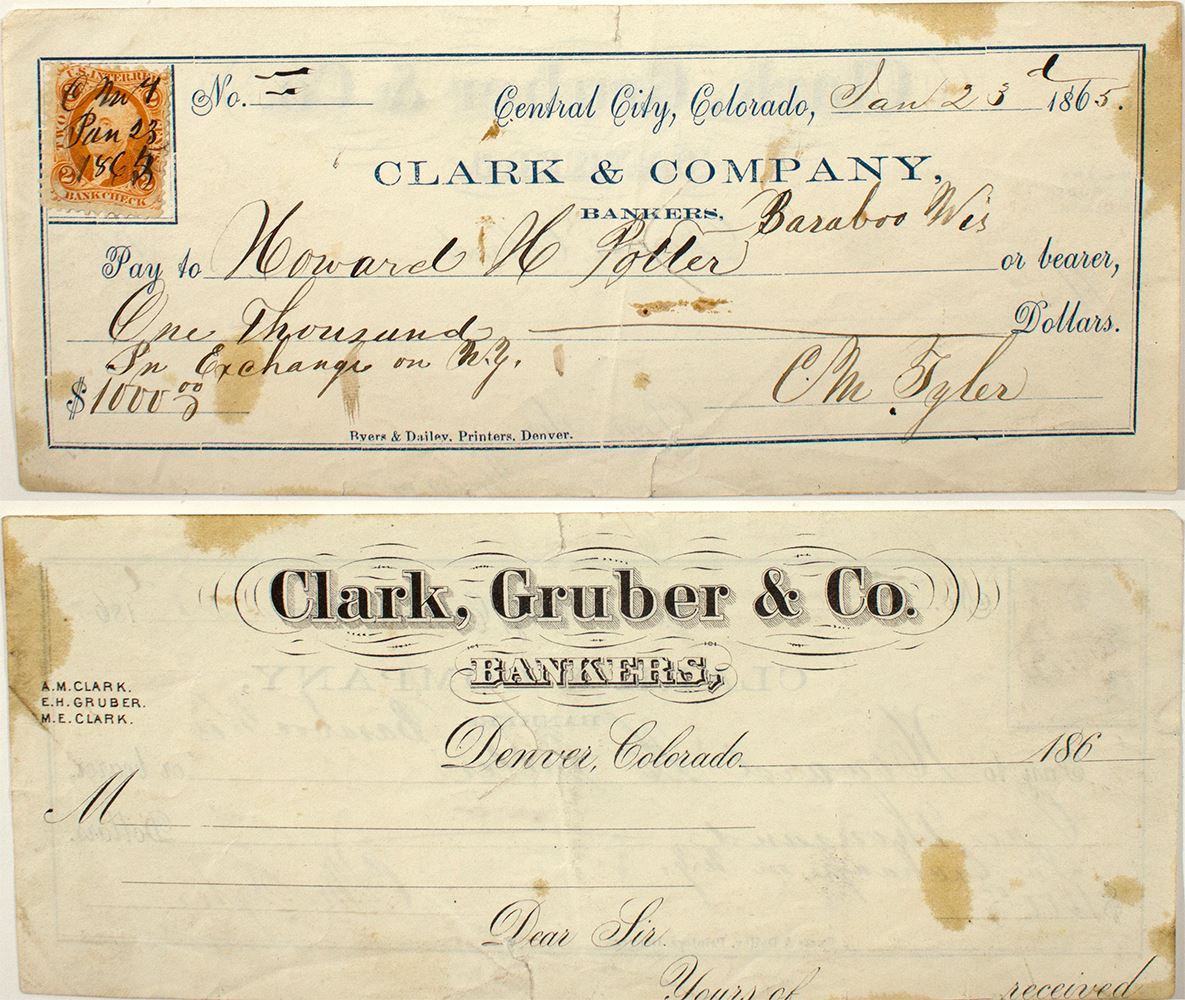 U.S. INTER. REV.
TWO CENTS
C M T
Jan 23
1865
2 2
BANK CHECK
No. =
Central City, Colorado, Jan 23d 1865.
CLARK & COMPANY,
BANKERS, Baraboo Wis
Pay to Howard H Potter or bearer,
One Thousand Dollars.
In Exchange on N.Y.
$1000 00
C M Tyler
Byers & Dailey, Printers, Denver.
Clark, Gruber & Co.
BANKERS,
A.M. CLARK.
E.H. GRUBER.
M.E. CLARK.
Denver, Colorado 186
M
Dear Sir.
Yours of received